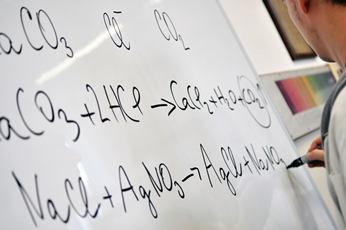 aCO₃ Cl̅ CO₂
aCO₃+2HCl→CaCl₂+H₂O+CO₂
NaCl+AgNO₃→AgCl+NaNO₃